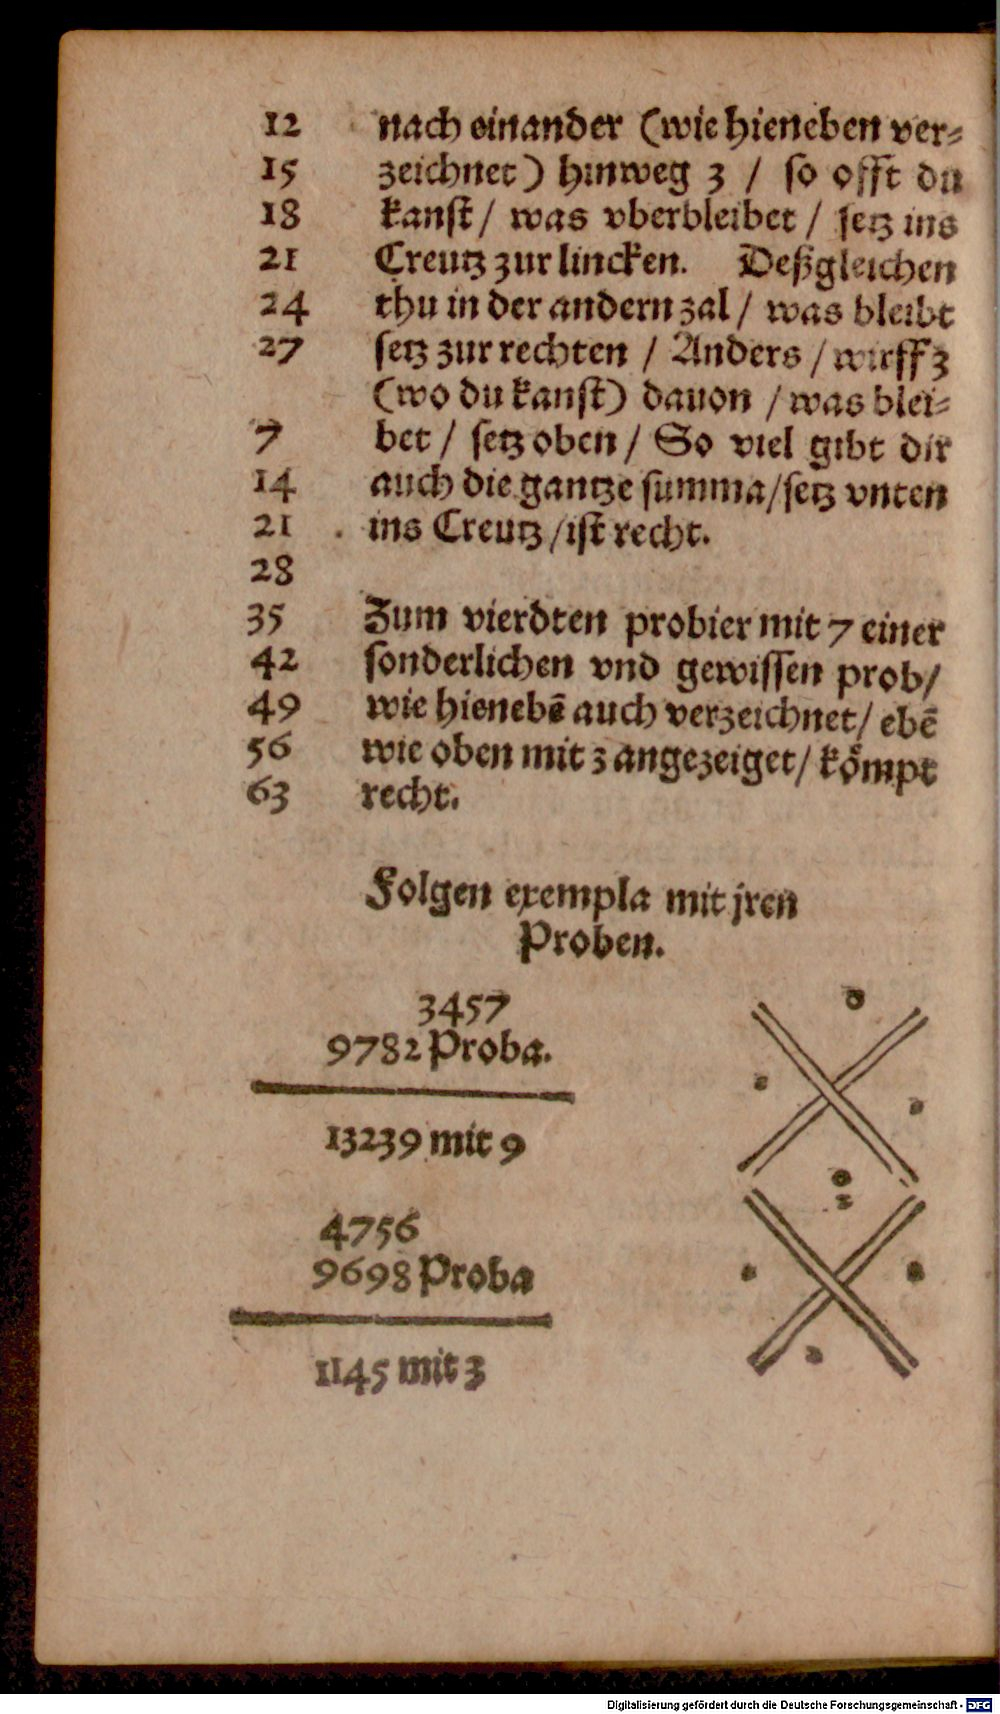 12 nach einander (wie hieneben ver⸗
15 zeichnet) hinweg 3 / so offt du
18 kanst / was vberbleibet / setz ins
21 Creutz zur lincken. Deßgleichen
24 thu in der andern zal / was bleibt
27 setz zur rechten / Anders / wirff 3
(wo du kanst) dauon / was blei⸗
7 bet / setz oben / So viel gibt dir
14 auch die gantze summa / setz vnten
21 ins Creutz / ist recht.
28
35 Zum vierdten probier mit 7 einer
42 sonderlichen vnd gewissen prob /
49 wie hienebē auch verzeichnet / ebē
56 wie oben mit 3 angezeiget / kömpt
63 recht.
Folgen exempla mit jren
Proben.
3457
9782 Proba.
13239 mit 9
0
0
4756
9698 Proba
1145 mit 3
2
Digitalisierung gefördert durch die Deutsche Forschungsgemeinschaft - DFG